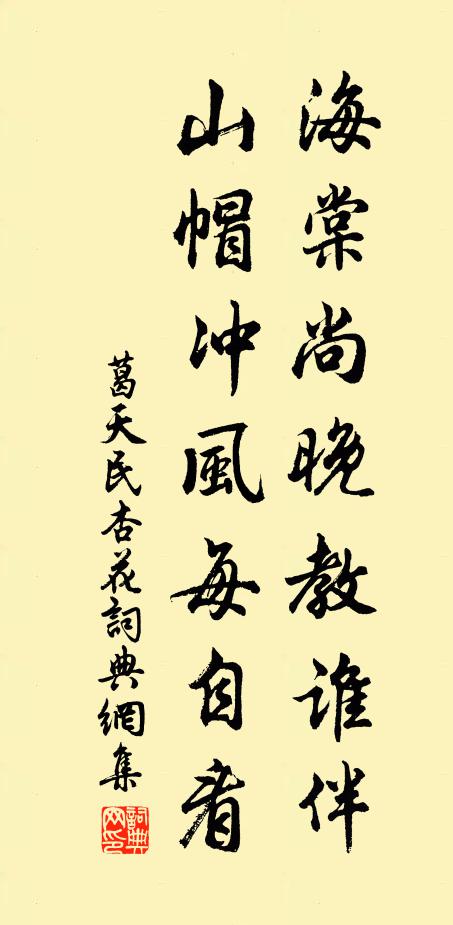 海棠尚晚教谁伴
山帽冲風每自看
葛天民杏花詞典網集
詞典网印